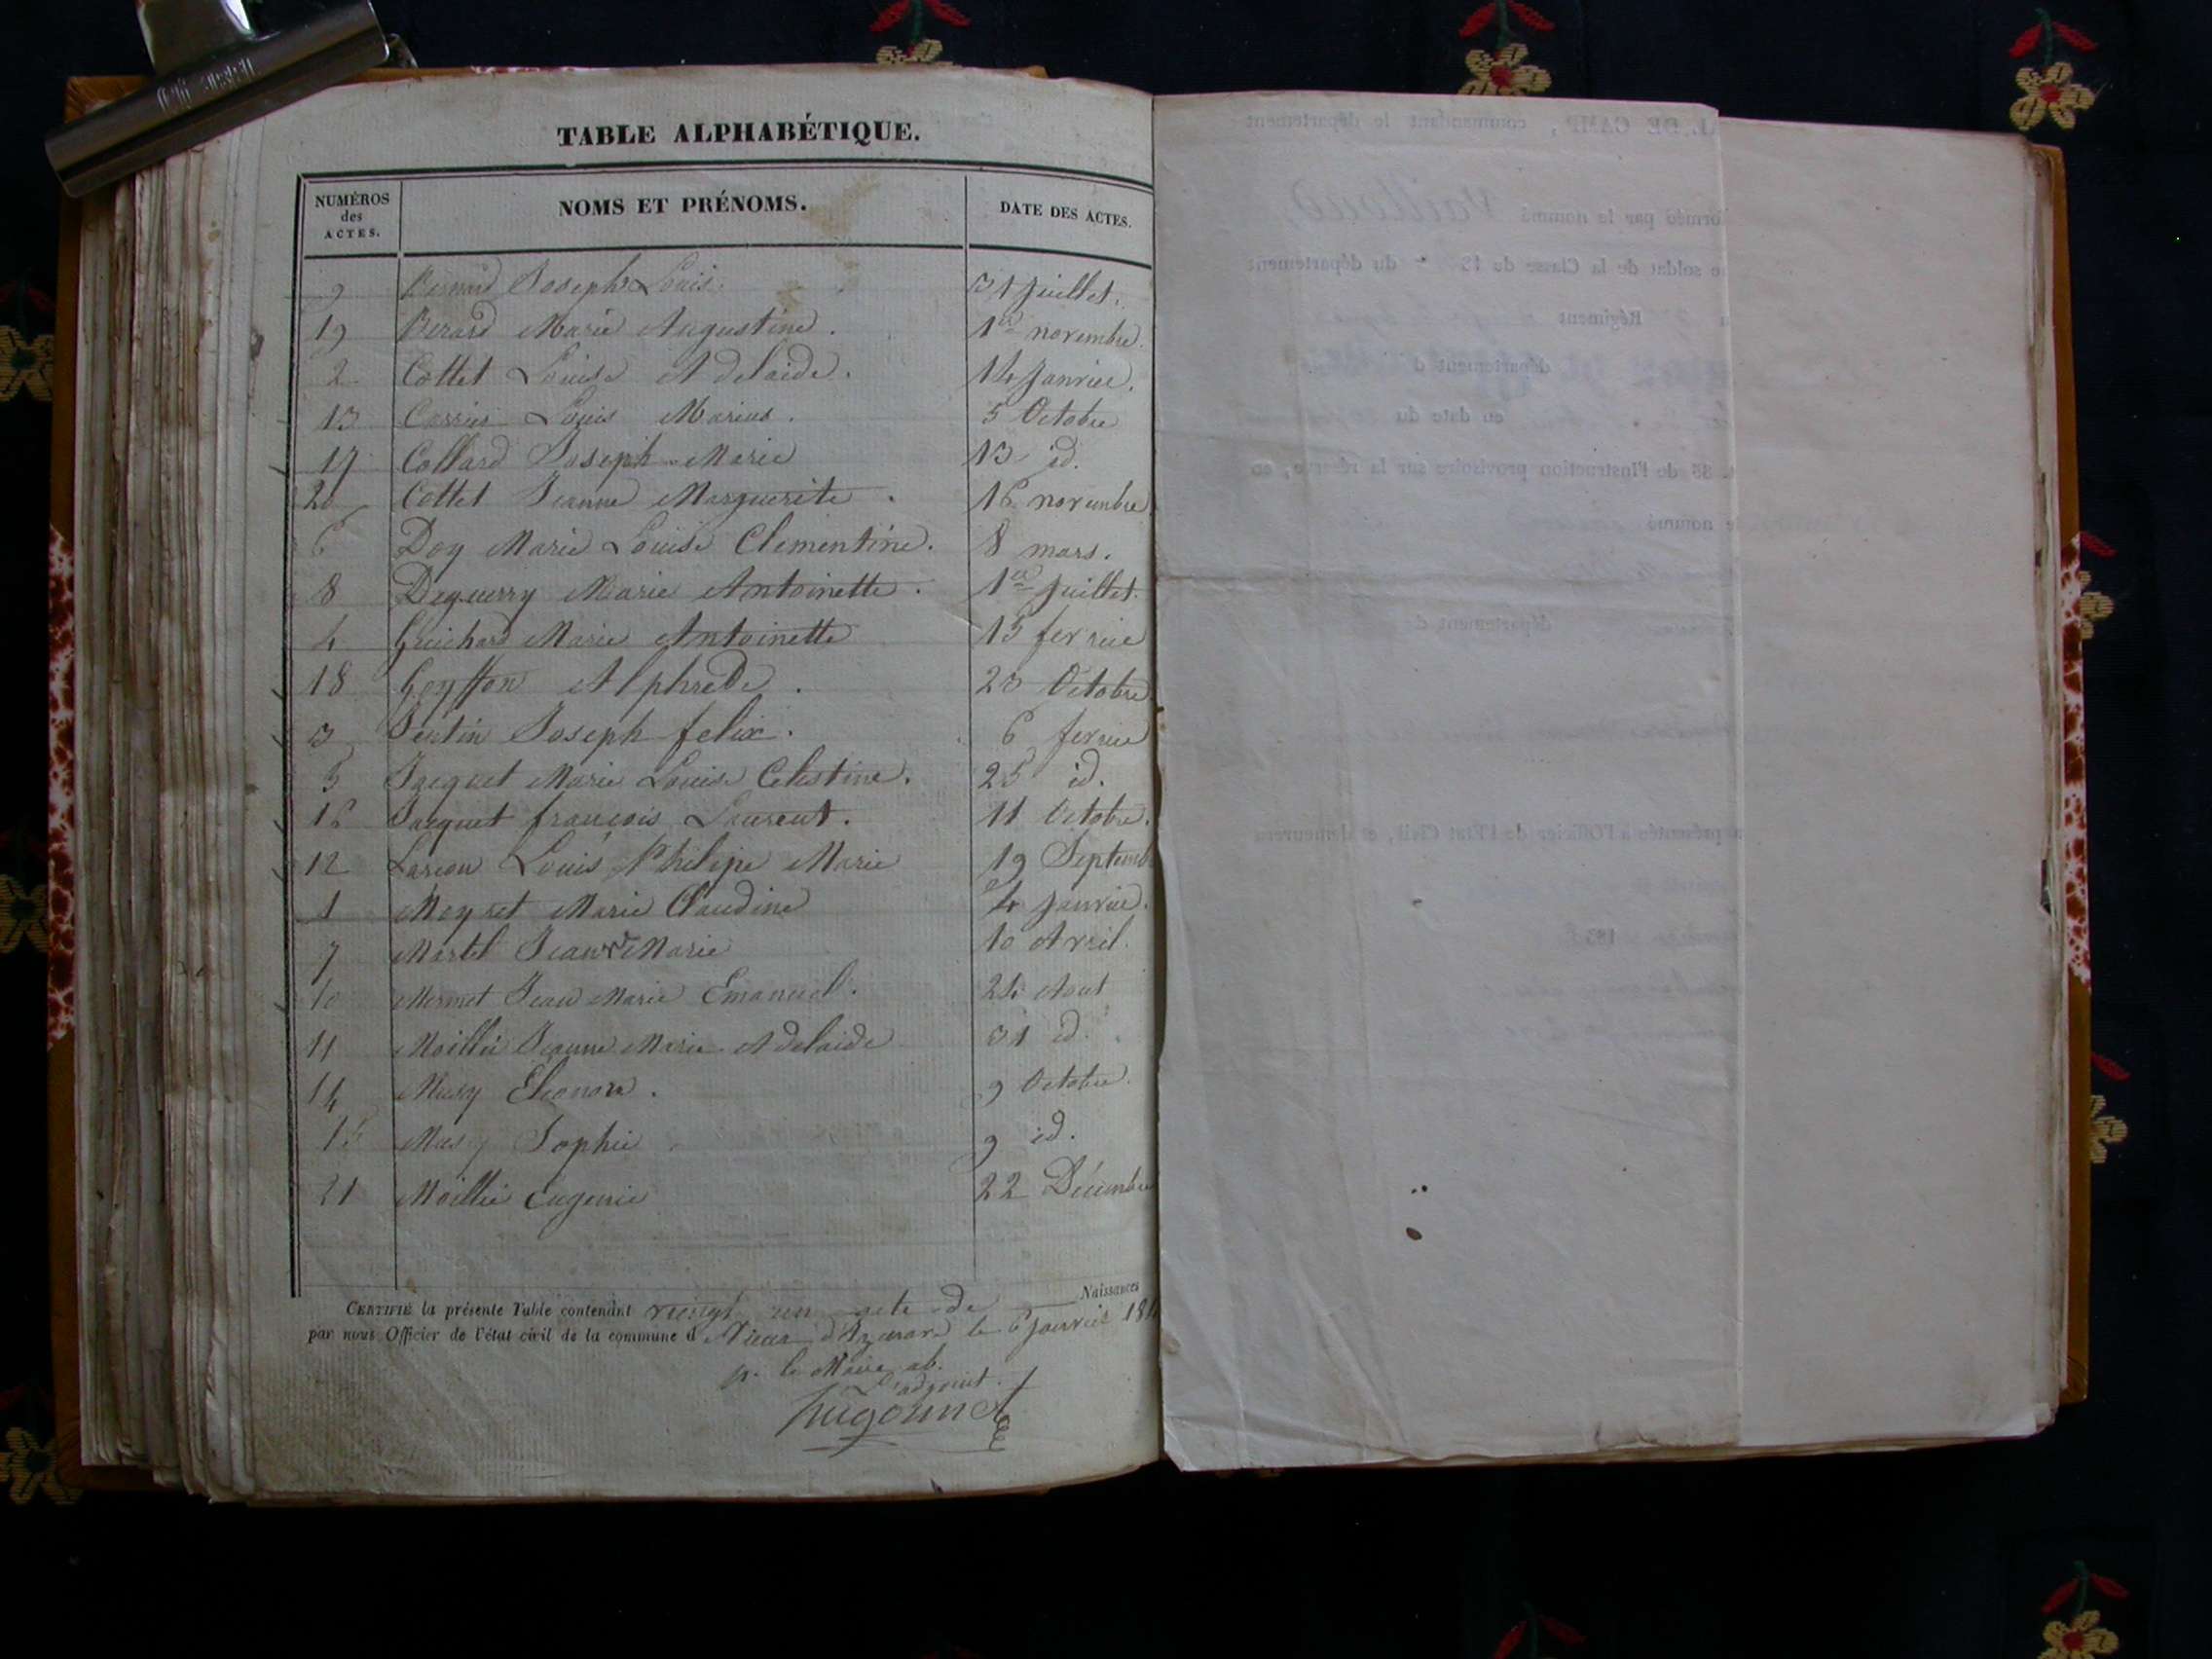 TABLE ALPHABÉTIQUE.
NUMÉROS des ACTES. NOMS ET PRÉNOMS. DATE DES ACTES.
9 Bernard Joseph Louis. 31 juillet.
19 Berard Marie Augustine. 1er novembre.
2 Cottet Louise Adelaide. 14 Janvier.
13 Carrier Louis Marius. 5 Octobre
17 Collard Joseph Marie 13 id.
20 Cottet Jeanne Marguerite. 16 novembre
6 Doy Marie Louise Clementine. 8 mars.
8 Deguerry Marie Antoinette. 1er juillet.
4 Guichard Marie Antoinette 15 fevrier
18 Goyffon Alphrede. 23 Octobre
3 Joseph felix. 6 fevrier
5 Jacquet Marie Louise Celestine. 25 id.
16 Jacquet françois Laurent. 11 Octobre.
12 Louis Philipe Marie 19 Septemb
1 Meynet Marie Claudine 4 Janvier.
7 Martel Jean Marie 10 Avril.
10 Mermet Jean Marie Emanuel. 24 Aout
11 Moillie Jeanne Marie Adelaide 31 id.
14 Musy Eleonore. 9 Octobre.
15 Musy Sophie 9 id.
21 Moillie Eugenie 22 Décembre
CERTIFIÉ la présente Table contenant vingt un acte de Naissances
par nous Officier de l'état civil de la commune d le 6 janvier 184
p. le Maire ab.
L'adjoint.
hugonnet
J. DE CAMP, commandant le département
formé par le nommé Vailloud,
soldat de la Classe de 18 du département
Régiment
département d
en date du
35 de l'Instruction provisoire sur la réserve, en
nommé
département d
présentée à l'Officier de l'État Civil, et demeurera
183